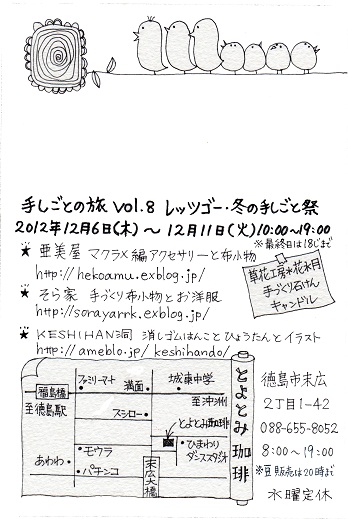 手しごとの旅 vol.8 レッツゴー・冬の手しごと祭
2012年12月6日(木)～12月11日(火)10:00～19:00
※最終日は18じまで
★ 亜美屋 マクラメ編アクセサリーと布小物
http://hekoamu.exblog.jp/
★ そら家 手づくり布小物とお洋服
http://sorayarrk.exblog.jp/
★ KESHIHAN洞 消しゴムはんことひょうたんとイラスト
http://ameblo.jp/keshihando/
草花工房*花水月
手づくり石けん
キャンドル
ファミリーマート
満面
城東中学
福島橋
至徳島駅
至沖洲
スシロー
とよとみ珈琲
ひまわり
ダンススタジオ
あわわ
モウラ
パチンコ
末広大橋
とよとみ珈琲
徳島市末広
2丁目1-42
088-655-8052
8:00～19:00
※豆販売は20時まで
水曜定休